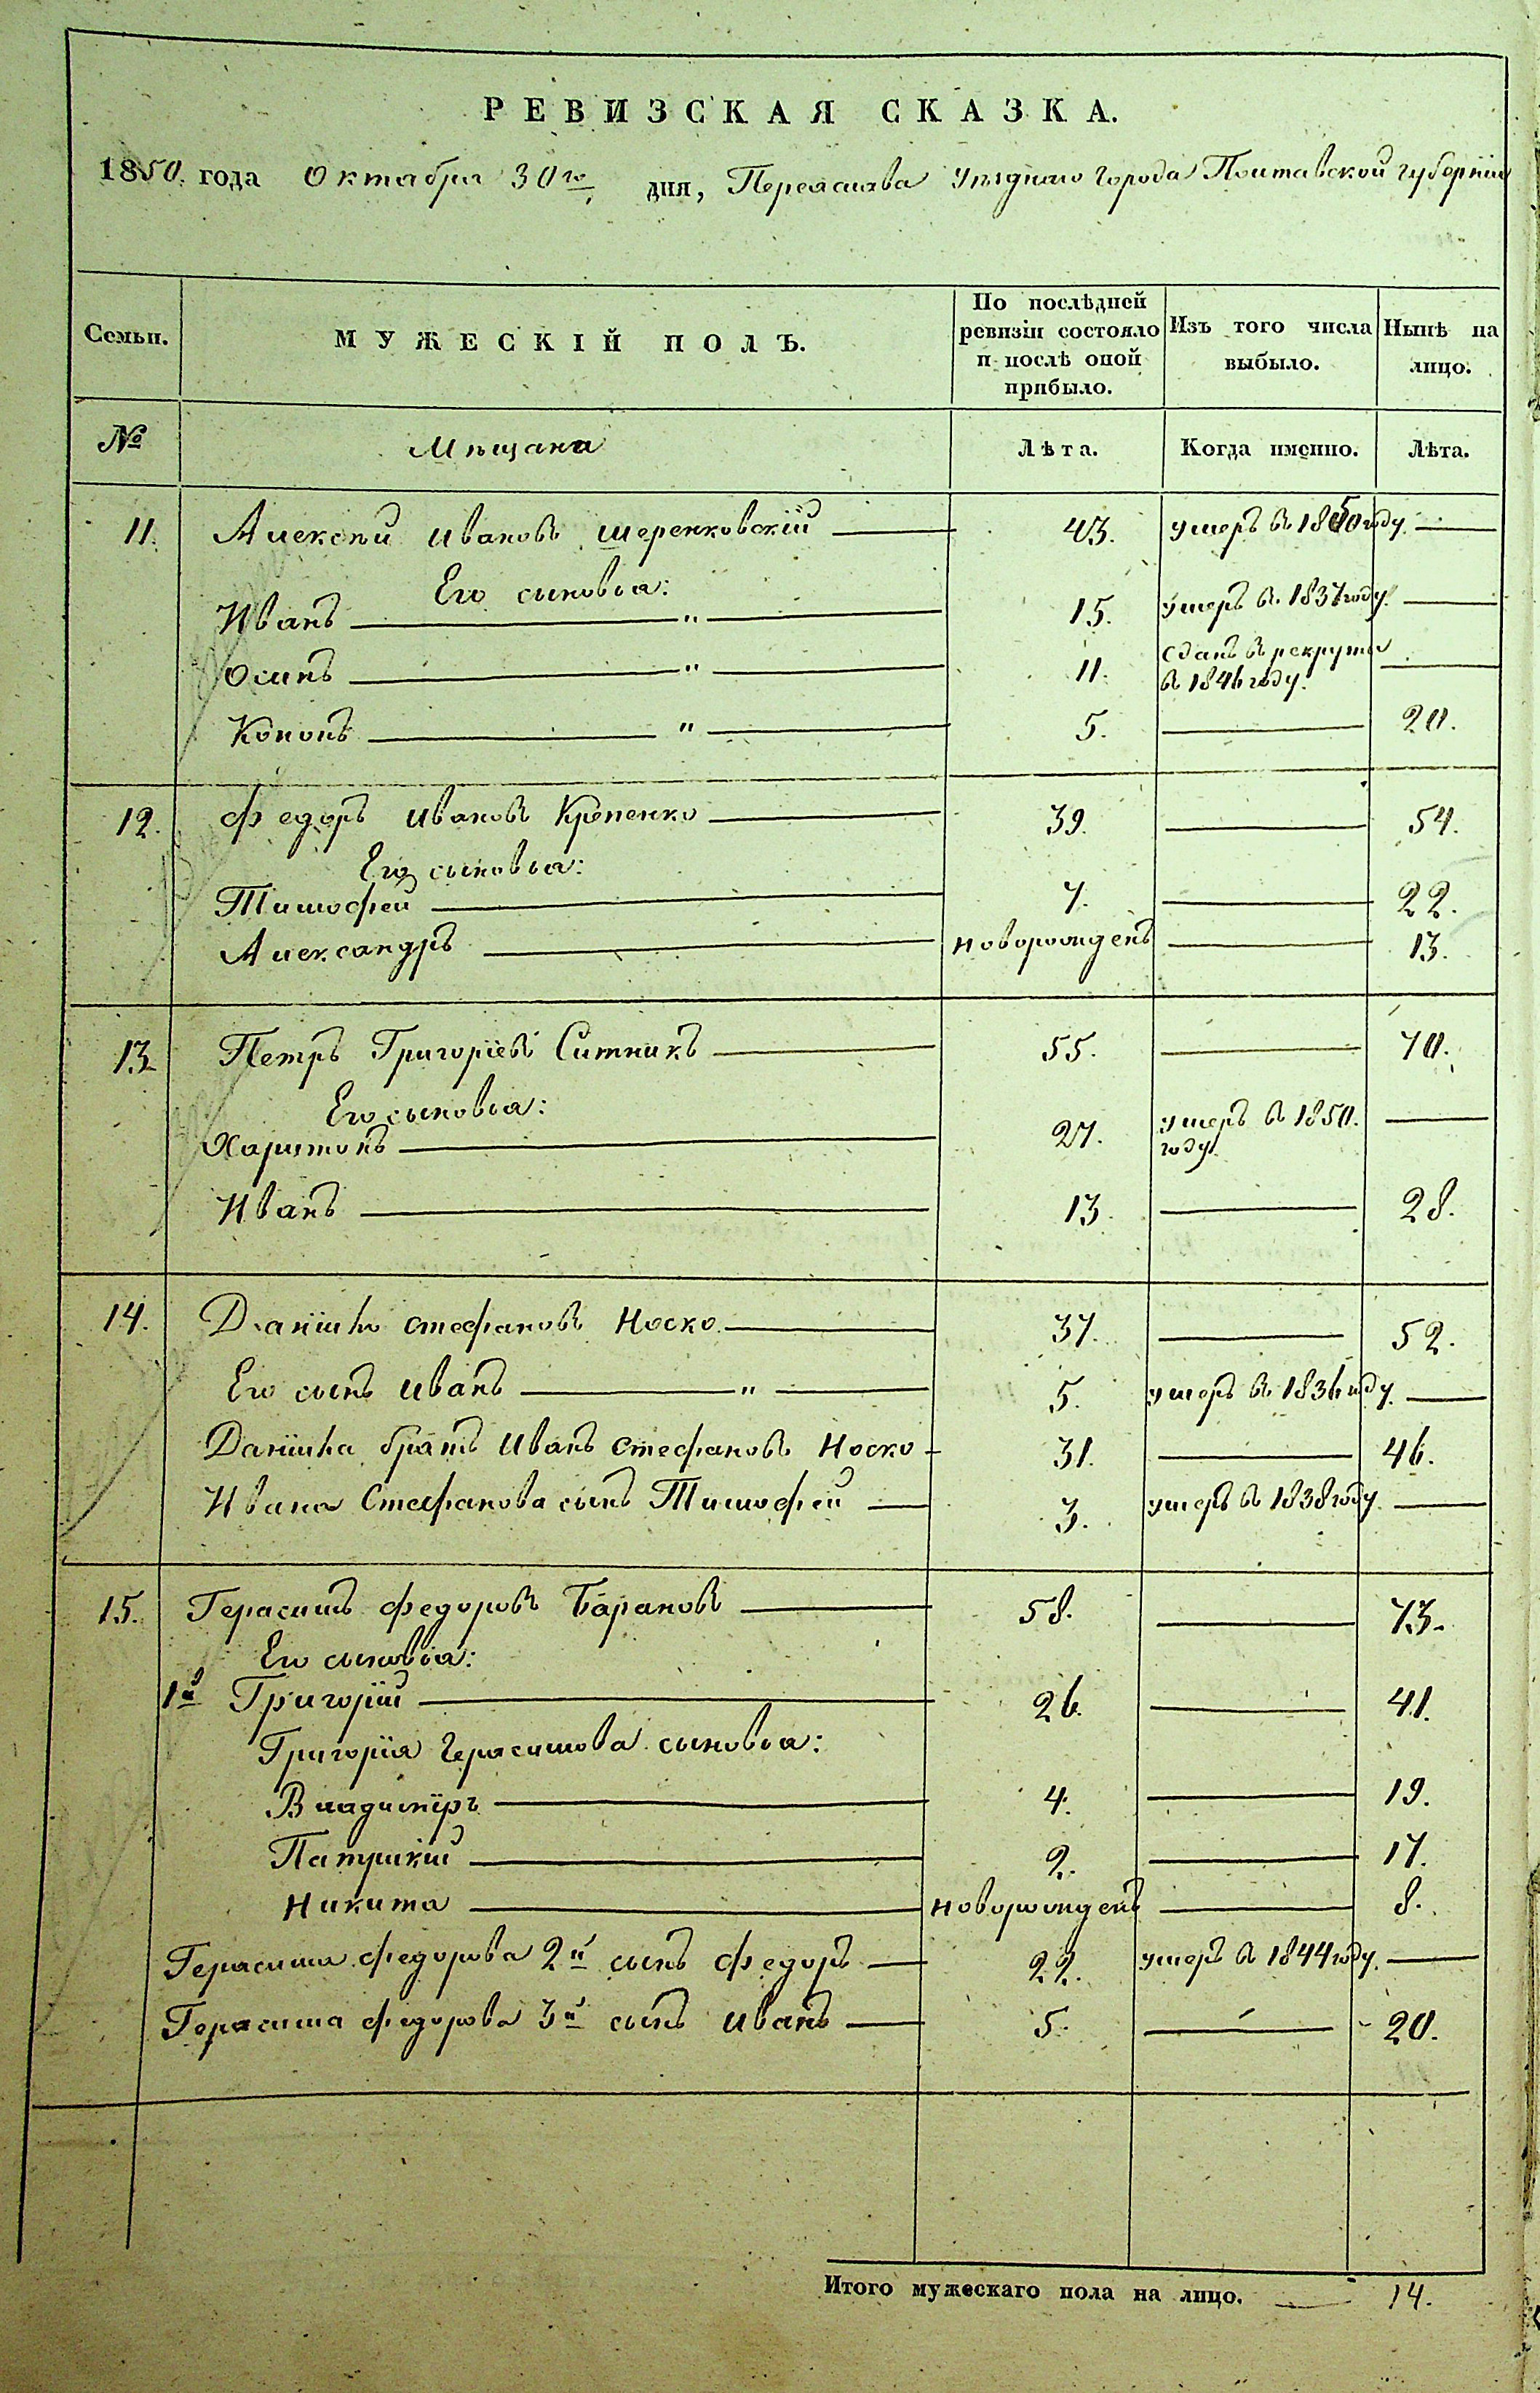 РЕВИЗСКАЯ СКАЗКА.
1850. года Октября 30го дня, Переяслава Уѣзднаго города Полтавской губерніи
Семьи. МУЖЕСКІЙ ПОЛЪ. По послѣдней ревизіи состояло и послѣ оной прибыло. Изъ того числа выбыло. Нынѣ на лицо.
№ Мѣщане Лѣта. Когда именно. Лѣта.
11. Алексѣй Ивановъ Шеренковскій 43. умеръ в 1850 году.
Его сыновья:
Иванъ " 15. умеръ в. 1837 году.
Осипъ " 11. сданъ в рекруты в 1846 году.
Кононъ " 5. 20.
12. Федоръ Ивановъ Крепенко 39. 54.
Его сыновья:
Тимофей 7. 22.
Александръ новорожденъ 13.
13. Петръ Григоріевъ Ситникъ 55. 70.
Его сыновья:
Харитонъ 27. умеръ в 1850. году.
Иванъ 13. 28.
14. Даніило Стефановъ Носко. 37. 52.
Его сынъ Иванъ " 5. умеръ в. 1836 году.
Даніила братъ Иванъ Стефановъ Носко 31. 46.
Ивана Стефанова сынъ Тимофей 3. умеръ в 1838 году.
15. Герасимъ Федоровъ Барановъ 58. 73.
Его сыновья:
1й Григорій 26. 41.
Григорія Герасимова сыновья:
Владиміръ 4. 19.
Патрикій 2. 17.
Никита новорожденъ 8.
Герасима Федорова 2й сынъ Федоръ 22. умеръ в 1844 году.
Герасима Федорова 3й сынъ Иванъ 5. 20.
Итого мужескаго пола на лицо. 14.